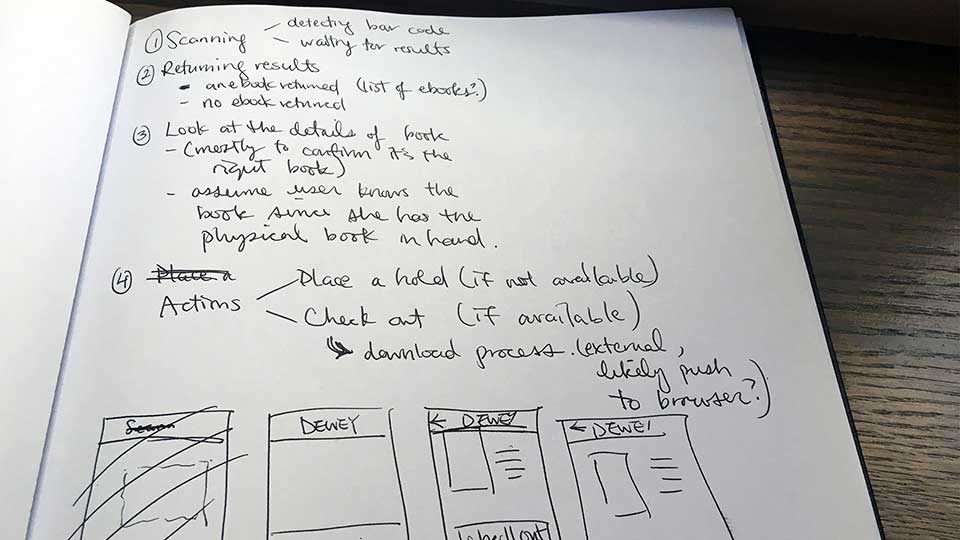 ① Scanning
detecting bar code
waiting for results
② Returning results
- an ebook returned (list of ebooks?)
- no ebook returned
③ Look at the details of book
- (mostly to confirm it's the
right book)
- assume user knows the
book since she has the
physical book in hand.
④ Place a
Actions
Place a hold (if not available)
Check out (if available)
↳ download process. (external,
likely push
to browser?)
Scan
DEWEY
← DEWEY
← DEWEY